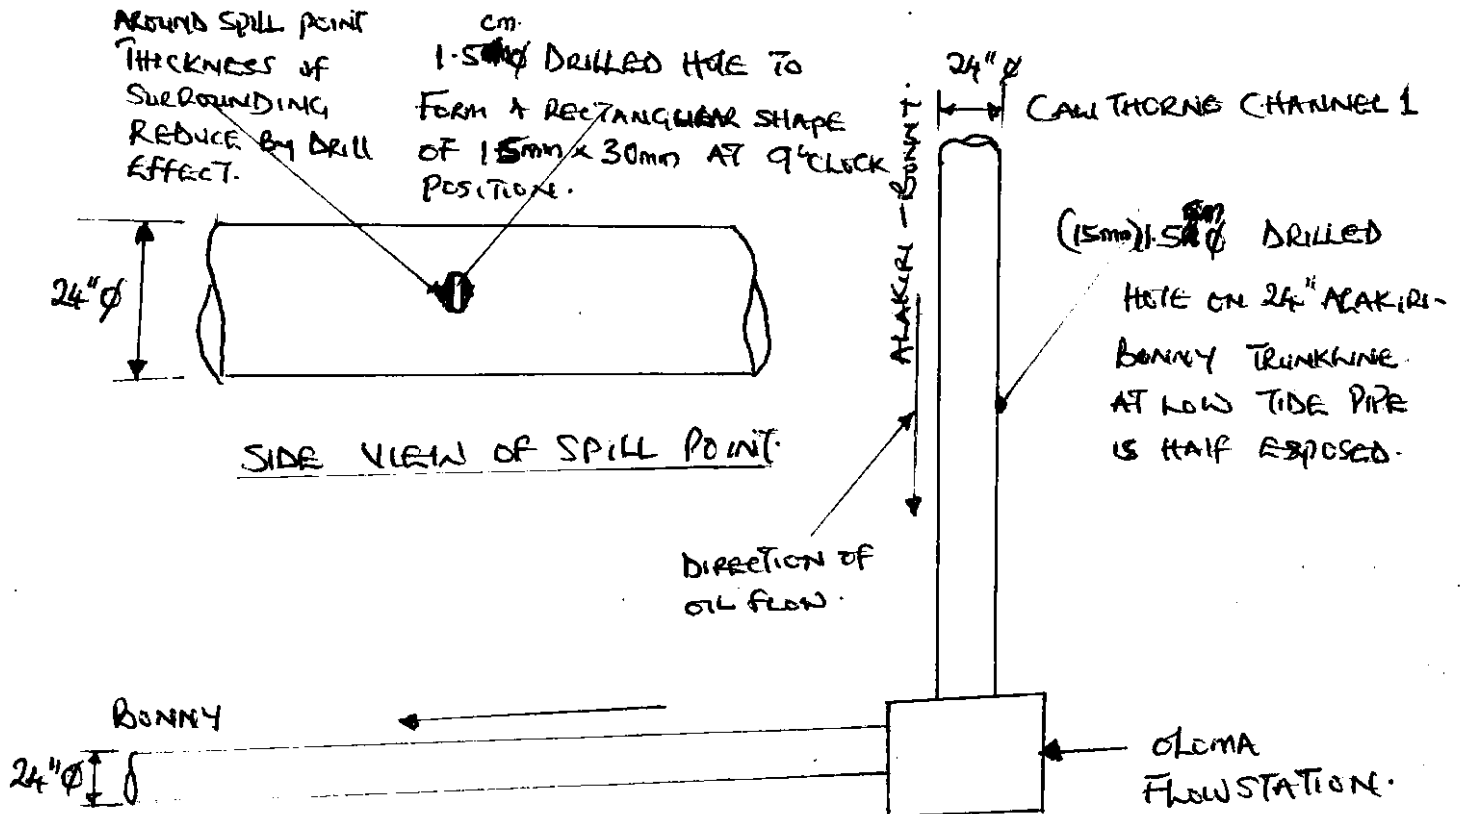 AROUND SPILL POINT
THICKNESS OF
SURROUNDING
REDUCE BY DRILL
EFFECT.
cm.
1.5 Ø DRILLED HOLE TO
FORM A RECTANGULAR SHAPE
OF 15mm x 30mm AT 9"CLOCK
POSITION.
24" Ø
CAWTHORNE CHANNEL 1
ALAKIRI - BONNY.
(15mm) 1.5 Ø DRILLED
HOLE ON 24" ALAKIRI-
BONNY TRUNKLINE
AT LOW TIDE PIPE
IS HALF EXPOSED.
24" Ø
SIDE VIEW OF SPILL POINT.
DIRECTION OF
OIL FLOW.
BONNY
24" Ø
OLOMA
FLOWSTATION.